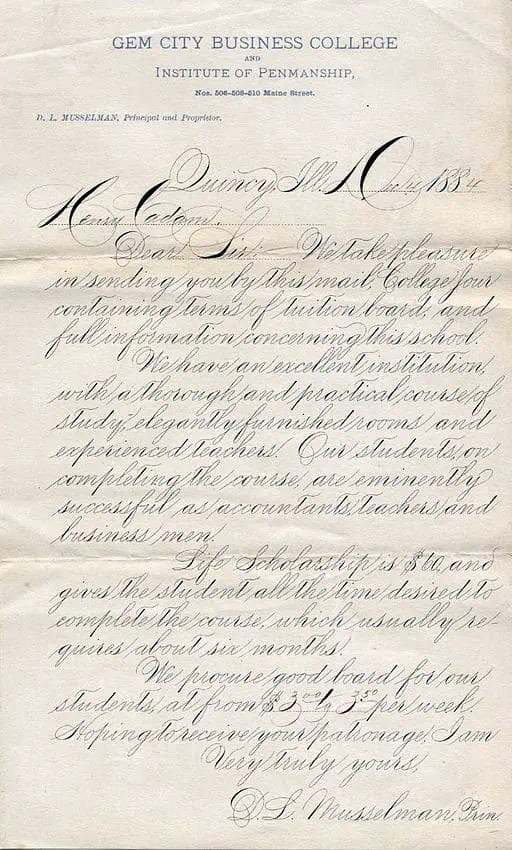 GEM CITY BUSINESS COLLEGE
AND
INSTITUTE OF PENMANSHIP,
Nos. 506-508-510 Maine Street.
D. L. MUSSELMAN, Principal and Proprietor.
Quincy, Ill. 10 1884
Henry Cadam.
Dear Sir:— We take pleasure
in sending you by this mail, College Jour
containing terms of tuition board, and
full information concerning this school.
We have an excellent institution,
with a thorough and practical course of
study, elegantly furnished rooms and
experienced teachers. Our students, on
completing the course, are eminently
successful as accountants, teachers and
business men.
Life Scholarship is $60, and
gives the student all the time desired to
complete the course, which usually re-
quires about six months.
We procure good board for our
students, at from $3 00 to 3 50 per week.
Hoping to receive your patronage, I am
Very truly yours,
D. L. Musselman, Prin.